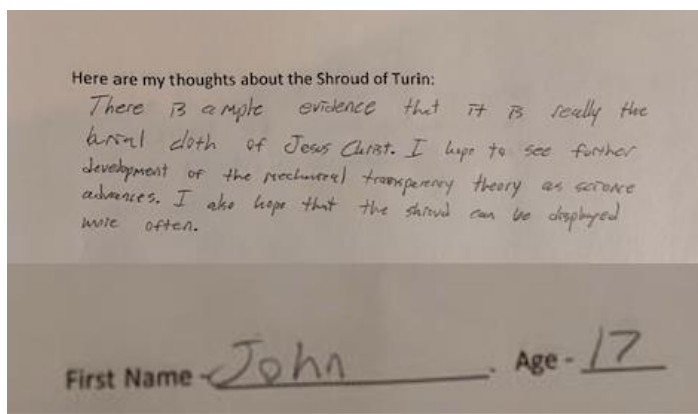 Here are my thoughts about the Shroud of Turin:
There is ample evidence that it is really the
burial cloth of Jesus Christ. I hope to see further
development of the mechanical transparency theory as science
advances. I also hope that the shroud can be displayed
more often.
First Name - John. Age - 17